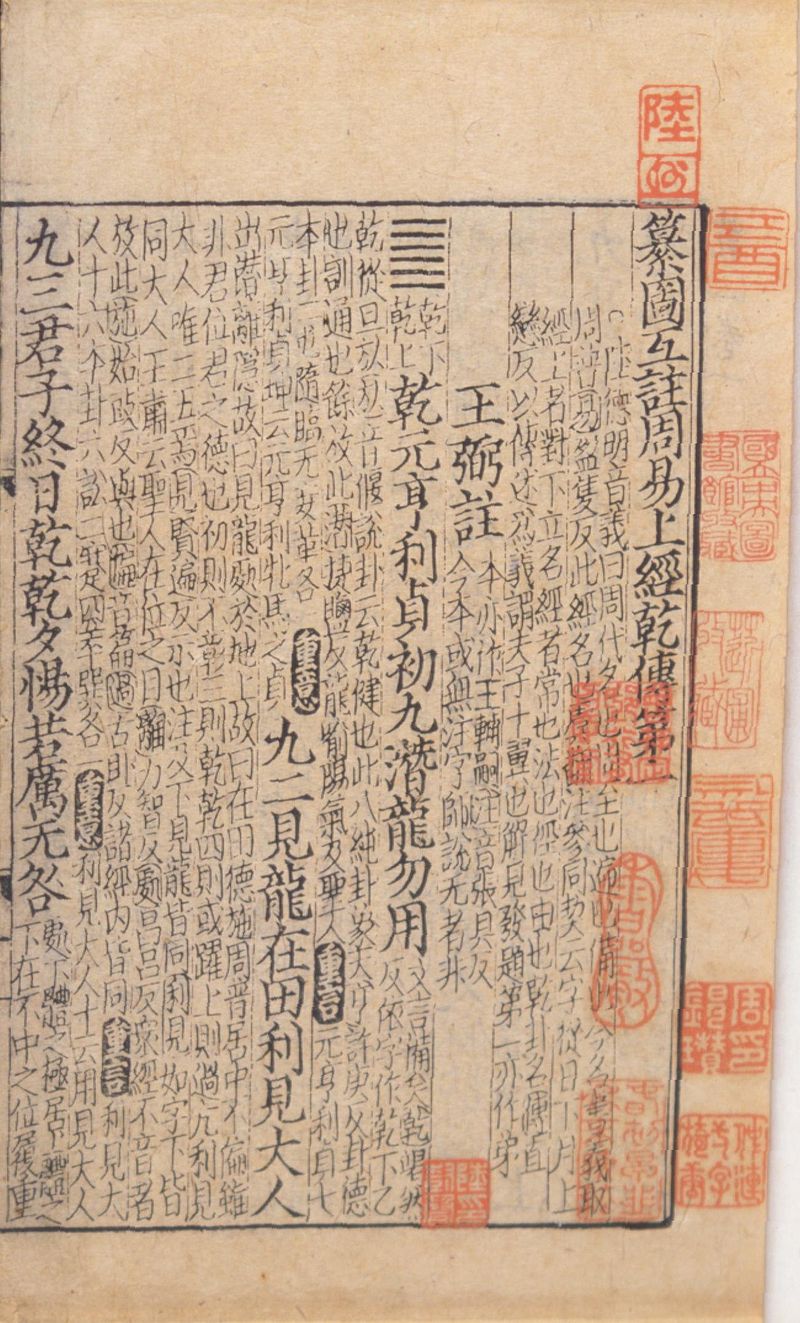 纂圖互註周易上經乾傳第一
○陸德明音義曰周代名也周至也遍也備也今名書義取
周普易盈隻反此經名也虞翻注參同契云字從日下月上
經上者對下立名經者常也法也徑也由也乾卦名傳直
戀反以傳述爲義謂夫子十翼也解見發題第一亦作弟
王弼註
本亦作王輔嗣注音張具反
今本或無注字師說无者非
乾下
乾上
乾元亨利貞初九潛龍勿用
文言備矣乾竭然
反依字作乾下乙
乾從旦㫃㫃音偃說卦云乾健也此八純卦象天亨許庚反卦德
也訓通也餘放此潛捷鹽反龍喻陽氣及聖人重言元亨利貞七
本卦二屯隨臨无妄革各一重意
元亨利貞坤云元亨利牝馬之貞九二見龍在田利見大人
出潛離隱故曰見龍處於地上故曰在田德施周普居中不偏雖
非君位君之德也初則不彰三則乾乾四則或躍上則過亢利見
大人唯二五焉見賢遍反示也注及下見龍皆同利見如字下皆
同大人王肅云聖人在位之目離力智反處昌呂反衆經不音者
放此施始豉反與也徧音遍過古臥反諸經内皆同重言利見大
人十六本卦六訟二蹇四萃巽各一重意利見大人十云用見大人
九三君子終日乾乾夕惕若厲无咎
處下體之極居上體之
下在不中之位履重